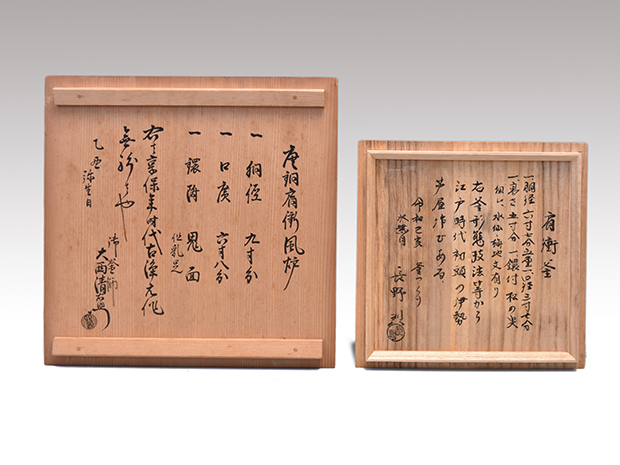 唐銅肩衝風炉
一 胴径 九寸分
一 口広 六寸八分
一 鐶附 鬼面
但乳足
右享保年時代古浄元作
無紛者也
乙亜 弥生日
御釜師
大西清右衛門
肩衝釜
一胴径 六寸七分五厘 一口径 三寸七分
一高さ 五寸分 一鐶付 松の実
胴に 水仙 梅地文有り
右釜形態技法等から
江戸時代初頭の伊勢
芦屋作である
令和己亥 釜つくり
長野